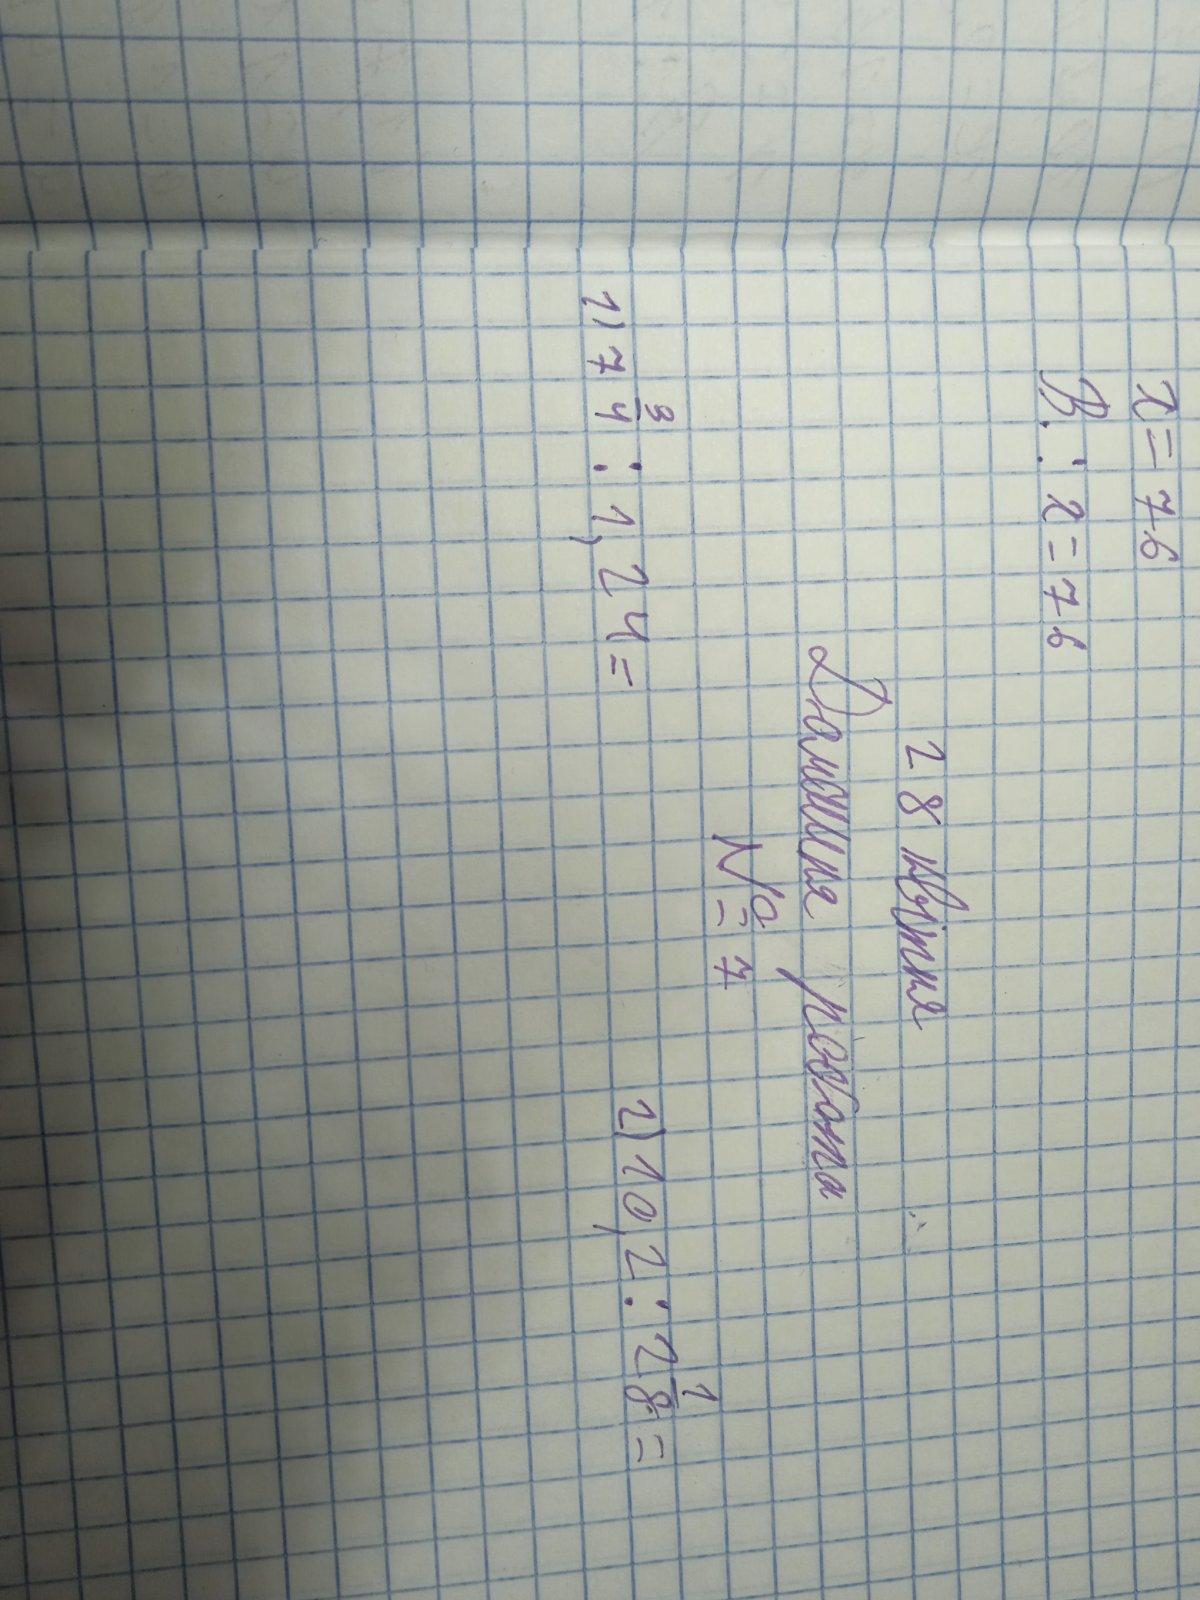 x = 76
В.: x = 76
28 квітня
Домашня робота
№ 7
1) 7 3/4 : 1,24 =
2) 10,2 : 2 1/8 =